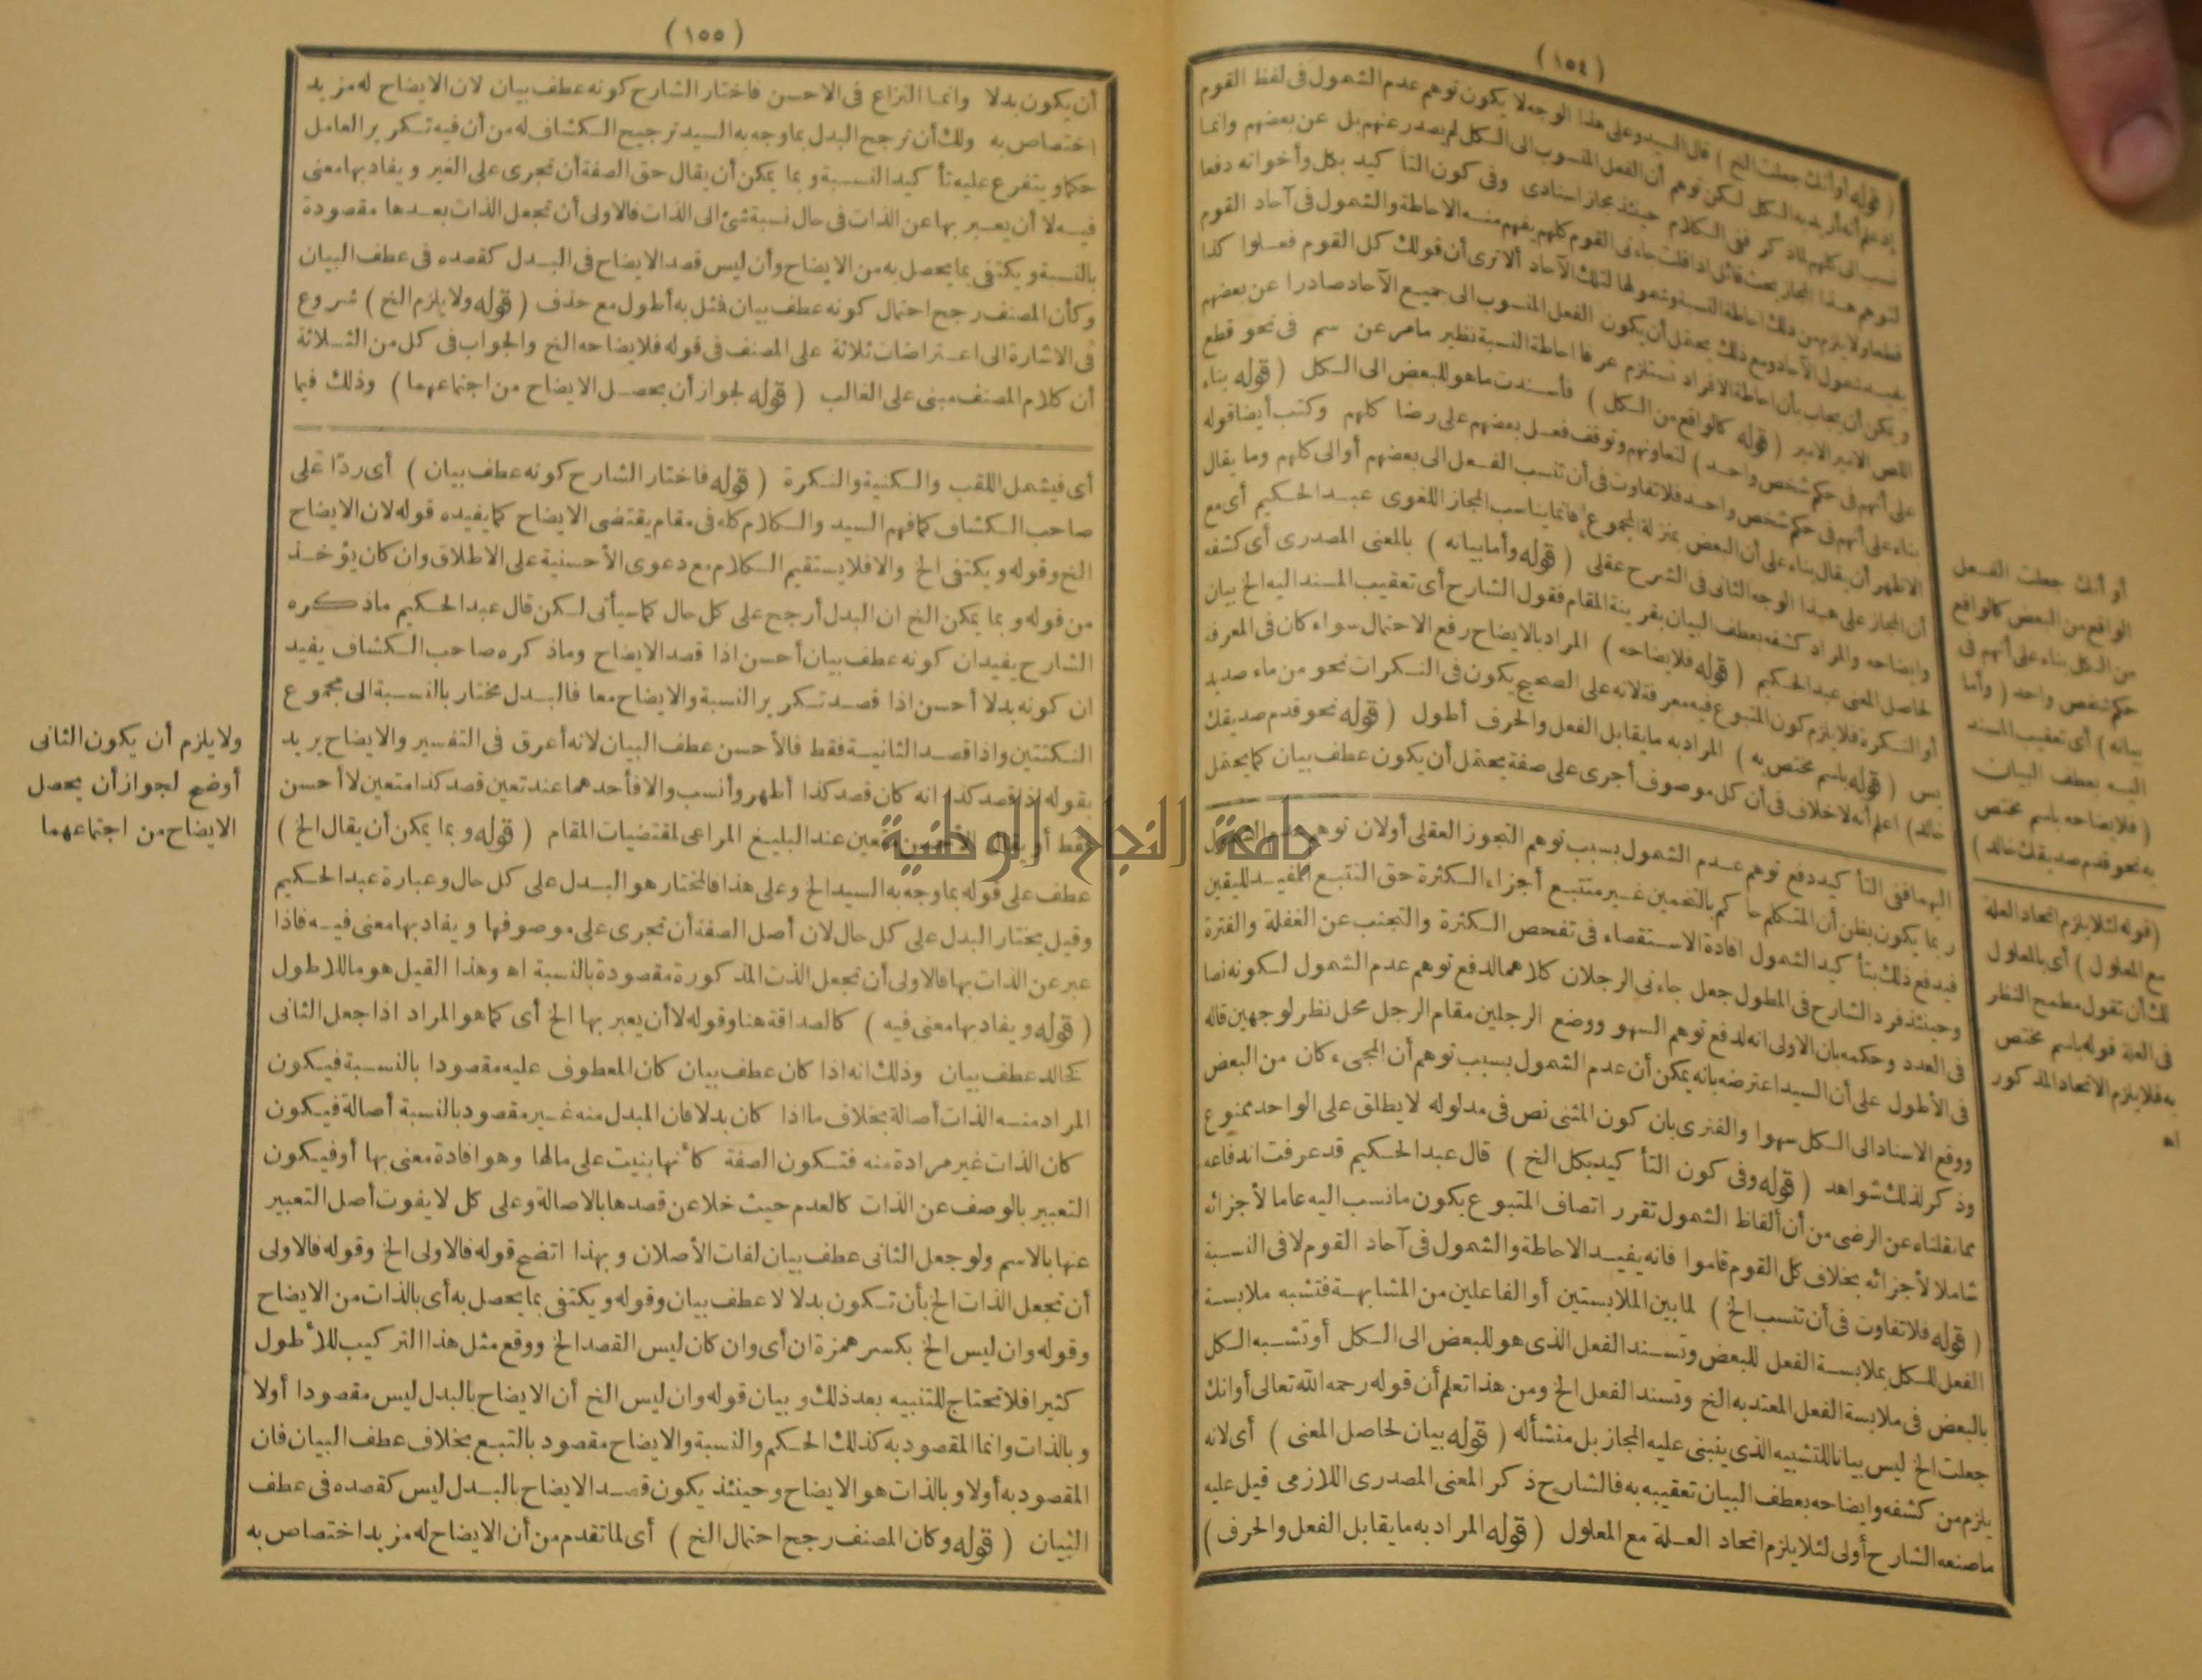 (١٥٤)
(قوله أو أنك جعلت الخ) قال السيد وعلى هذا الوجه لا يكون توهم عدم الشمول فى لفظ القوم
إذ علم أنه أريد به الكل لكن توهم أن الفعل المنسوب الى الكل لم يصدر عنهم بل عن بعضهم وانما
نسب الى كلهم لما ذكر ففى الكلام حينئذ مجاز اسنادى وفى كون التأكيد بكل وأخواته دفعا
لتوهم هذا المجاز بحث قائل اذا قلت جاءنى القوم كلهم يفهم منه الاحاطة والشمول فى آحاد القوم
قطعا ولا يلزم من ذلك احاطة النسبة وشمولها لتلك الآحاد ألا ترى أن قولك كل القوم فعلوا كذا
يفيد شمول الآحاد ومع ذلك يحتمل أن يكون الفعل المنسوب الى جميع الآحاد صادرا عن بعضهم
ويمكن أن يجاب بأن احاطة الافراد تستلزم عرفا احاطة النسبة نظير مامر عن سم فى نحو قطع
اللص الامير الامير (قوله كالواقع من الكل) فأسندت ماهو للبعض الى الكل (قوله بناء
على أنهم فى حكم شخص واحد) لتعاونهم وتوقف فعل بعضهم على رضا كلهم وكتب أيضا قوله
بناء على أنهم فى حكم شخص واحد فلا تفاوت فى أن تنسب الفعل الى بعضهم أو الى كلهم وما يقال
الاظهر أن يقال بناء على أن البعض بمنزلة المجموع فانما يناسب المجاز اللغوى عبد الحكيم أى مع
أن المجاز على هذا الوجه الثانى فى الشرح عقلى (قوله وأما بيانه) بالمعنى المصدرى أى كشفه
وايضاحه والمراد كشفه بعطف البيان بقرينة المقام فقول الشارح أى تعقيب المسند اليه الخ بيان
لحاصل المعنى عبد الحكيم (قوله فلايضاحه) المراد بالايضاح رفع الاحتمال سواء كان فى المعرفة
أو النكرة فلا يلزم كون المتبوع فيه معرفة لانه على الصحيح يكون فى النكرات نحو من ماء صديد
يس (قوله باسم مختص به) المراد به ما يقابل الفعل والحرف أطول (قوله نحو قدم صديقك
خالد) اعلم أنه لا خلاف فى أن كل موصوف أجرى على صفة يحتمل أن يكون عطف بيان كما يحتمل
اليهما ففى التأكيد دفع توهم عدم الشمول بسبب توهم التجوز العقلى أو لان توهم عدم الشمول
ربما يكون بظن أن المتكلم حاكم بالتخمين غير متتبع أجزاء الكثرة حق التتبع المفيد لليقين
فيدفع ذلك بتأكيد الشمول افادة الاستقصاء فى تفحص الكثرة والتجنب عن الغفلة والفترة
وحينئذ فرد الشارح فى المطول جعل جاءنى الرجلان كلاهما لدفع توهم عدم الشمول لكونه نصا
فى العدد وحكمه بان الاولى انه لدفع توهم السهو ووضع الرجلين مقام الرجل محل نظر لوجهين قاله
فى الأطول على أن السيد اعترضه بانه يمكن أن عدم الشمول بسبب توهم أن المجىء كان من البعض
ووقع الاسناد الى الكل سهوا والفنرى بان كون المثنى نص فى مدلوله لا يطلق على الواحد ممنوع
وذكر لذلك شواهد (قوله وفى كون التأكيد بكل الخ) قال عبد الحكيم قد عرفت اندفاعه
مما نقلناه عن الرضى من أن ألفاظ الشمول تقرر اتصاف المتبوع بكون ما نسب اليه عاما لأجزائه
شاملا لأجزائه بخلاف كل القوم قاموا فانه يفيد الاحاطة والشمول فى آحاد القوم لا فى النسبة
(قوله فلا تفاوت فى أن تنسب الخ) لما بين الملابستين أو الفاعلين من المشابهة فتشبه ملابسة
الفعل للكل بملابسة الفعل للبعض وتسند الفعل الذى هو للبعض الى الكل أو تشبه الكل
بالبعض فى ملابسة الفعل المعتد به الخ وتسند الفعل الخ ومن هذا تعلم أن قوله رحمه الله تعالى أو انك
جعلت الخ ليس بيانا للتشبيه الذى ينبنى عليه المجاز بل منشأ له (قوله بيان لحاصل المعنى) أى لانه
يلزم من كشفه وايضاحه بعطف البيان تعقيبه به فالشارح ذكر المعنى المصدرى اللازمى قيل عليه
ما صنعه الشارح أولى لئلا يلزم اتحاد العلة مع المعلول (قوله المراد به ما يقابل الفعل والحرف)
أو أنك جعلت الفعل
الواقع من البعض كالواقع
من الكل بناء على أنهم فى
حكم شخص واحد (وأما
بيانه) أى تعقيب المسند
اليه بعطف البيان
(فلايضاحه باسم مختص
به نحو قدم صديقك خالد)
(قوله لئلا يلزم اتحاد العلة
مع المعلول) أى بالمعلول
لك أن تقول مطمح النظر
فى العلة قوله باسم مختص
به فلا يلزم الاتحاد المذكور
اه
(١٥٥)
أن يكون بدلا وانما النزاع فى الاحسن فاختار الشارح كونه عطف بيان لان الايضاح له مزيد
اختصاص به ولك أن ترجح البدل بما وجه به السيد ترجيح الكشاف له من أن فيه تكرير العامل
حكما ويتفرع عليه تأكيد النسبة وبما يمكن أن يقال حق الصفة أن تجرى على الغير ويفاد بها معنى
فيه لا أن يعبر بها عن الذات فى حال نسبة شئ الى الذات فالاولى أن تجعل الذات بعدها مقصودة
بالنسبة ويكتفى بما يحصل به من الايضاح وأن ليس قصد الايضاح فى البدل كقصده فى عطف البيان
وكأن المصنف رجح احتمال كونه عطف بيان فمثل به أطول مع حذف (قوله ولا يلزم الخ) شروع
فى الاشارة الى اعتراضات ثلاثة على المصنف فى قوله فلايضاحه الخ والجواب فى كل من الثلاثة
أن كلام المصنف مبنى على الغالب (قوله لجواز أن يحصل الايضاح من اجتماعهما) وذلك فيما
أى فيشمل اللقب والكنية والنكرة (قوله فاختار الشارح كونه عطف بيان) أى ردّا على
صاحب الكشاف كما فهم السيد والكلام كله فى مقام يقتضى الايضاح كما يفيده قوله لان الايضاح
الخ وقوله ويكتفى الخ والا فلا يستقيم الكلام مع دعوى الأحسنية على الاطلاق وان كان يؤخذ
من قوله وبما يمكن الخ ان البدل أرجح على كل حال كما سيأتى لكن قال عبد الحكيم ما ذكره
الشارح يفيد ان كونه عطف بيان أحسن اذا قصد الايضاح وما ذكره صاحب الكشاف يفيد
ان كونه بدلا أحسن اذا قصد تكرير النسبة والايضاح معا فالبدل مختار بالنسبة الى مجموع
النكتتين واذا قصد الثانية فقط فالأحسن عطف البيان لانه أعرق فى التفسير والايضاح يريد
بقوله اذا قصد كذا انه كان قصد كذا أظهر وأنسب والا فأحدهما عند تعين قصد كذا متعين لا أحسن
فقط أو يقال الأحسن متعين عند البليغ المراعى لمقتضيات المقام (قوله وبما يمكن أن يقال الخ)
عطف على قوله بما وجه به السيد الخ وعلى هذا فالمختار هو البدل على كل حال وعبارة عبد الحكيم
وقيل يختار البدل على كل حال لان أصل الصفة أن تجرى على موصوفها ويفاد بها معنى فيه فاذا
عبر عن الذات بها فالاولى أن تجعل الذت المذكورة مقصودة بالنسبة اه وهذا القيل هو ما للاطول
(قوله ويفاد بها معنى فيه) كالصداقة هنا وقوله لا أن يعبر بها الخ أى كما هو المراد اذا جعل الثانى
كخالد عطف بيان وذلك انه اذا كان عطف بيان كان المعطوف عليه مقصودا بالنسبة فيكون
المراد منه الذات أصالة بخلاف ما اذا كان بدلا فان المبدل منه غير مقصود بالنسبة أصالة فيكون
كان الذات غير مرادة منه فتكون الصفة كأنها بنيت على مالها وهو افادة معنى بها أو فيكون
التعبير بالوصف عن الذات كالعدم حيث خلا عن قصدها بالاصالة وعلى كل لا يفوت أصل التعبير
عنها بالاسم ولو جعل الثانى عطف بيان لفات الأصلان وبهذا اتضح قوله فالاولى الخ وقوله فالاولى
أن تجعل الذات الخ بأن تكون بدلا لا عطف بيان وقوله ويكتفى بما يحصل به أى بالذات من الايضاح
وقوله وان ليس الخ بكسر همزة ان أى وان كان ليس القصد الخ ووقع مثل هذا التركيب للأطول
كثيرا فلا تحتاج للتنبيه بعد ذلك وبيان قوله وان ليس الخ أن الايضاح بالبدل ليس مقصودا أولا
وبالذات وانما المقصود به كذلك الحكيم والنسبة والايضاح مقصود بالتبع بخلاف عطف البيان فان
المقصود به أولا وبالذات هو الايضاح وحينئذ يكون قصد الايضاح بالبدل ليس كقصده فى عطف
البيان (قوله وكان المصنف رجح احتمال الخ) أى لما تقدم من أن الايضاح له مزيد اختصاص به
ولا يلزم أن يكون الثانى
أوضح لجواز أن يحصل
الايضاح من اجتماعهما
جامعة النجاح الوطنية